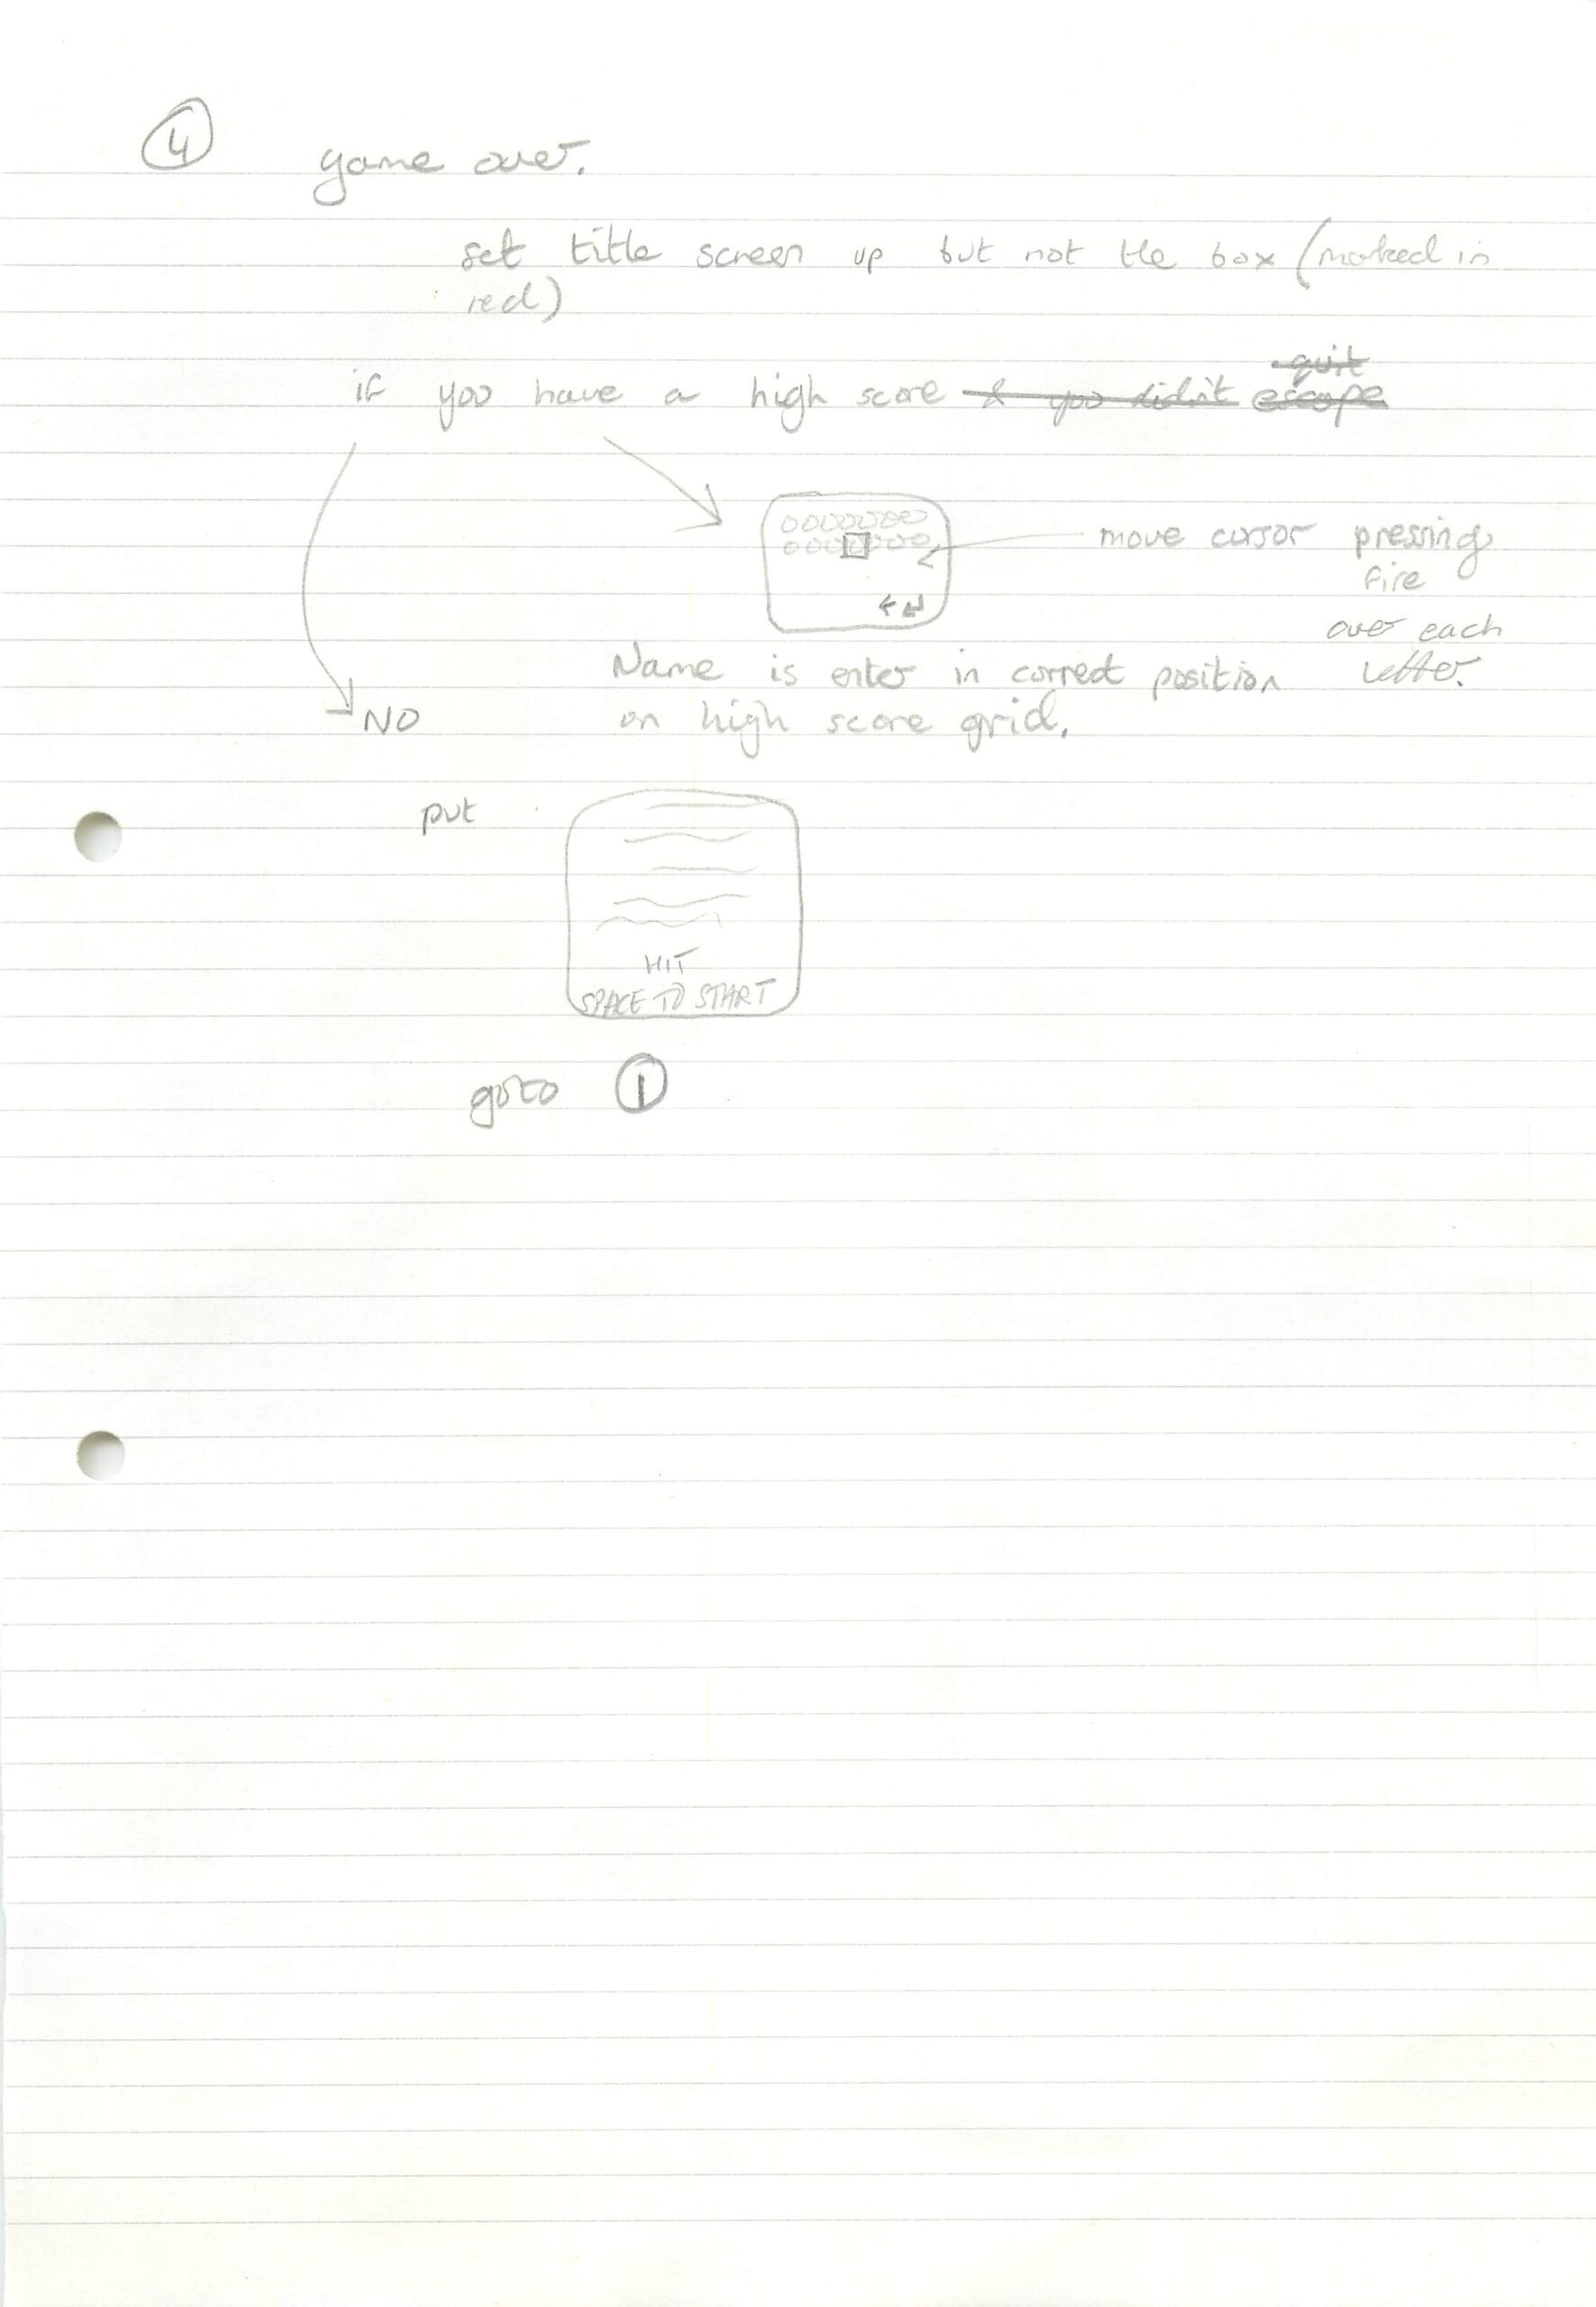 4 game over.
set title screen up but not the box (marked in
red)
quit
if you have a high score & you didn't escape
move cursor pressing
fire
over each
letter.
Name is enter in correct position
on high score grid.
NO
put
HIT
SPACE TO START
goto 1